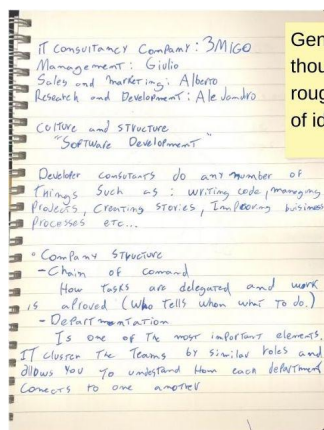 IT consultancy company: 3MIGO
Management: Giulio
Sales and marketing: Alberto
Research and Development: Alejandro
Culture and structure
"Software Development"
Developer consutants do any number of
things such as: writing code, managing
Projects, Creating stories, Improving business
Processes etc...
"Company Structure
- Chain of comand
How tasks are delegated and work
is aproved (who tells whom what to do.)
- Departmentation
Is one of the most important elements,
IT cluster the Teams by similar roles and
allows You to undestand How each department
Conects to one another
Gen
thou
roug
of id